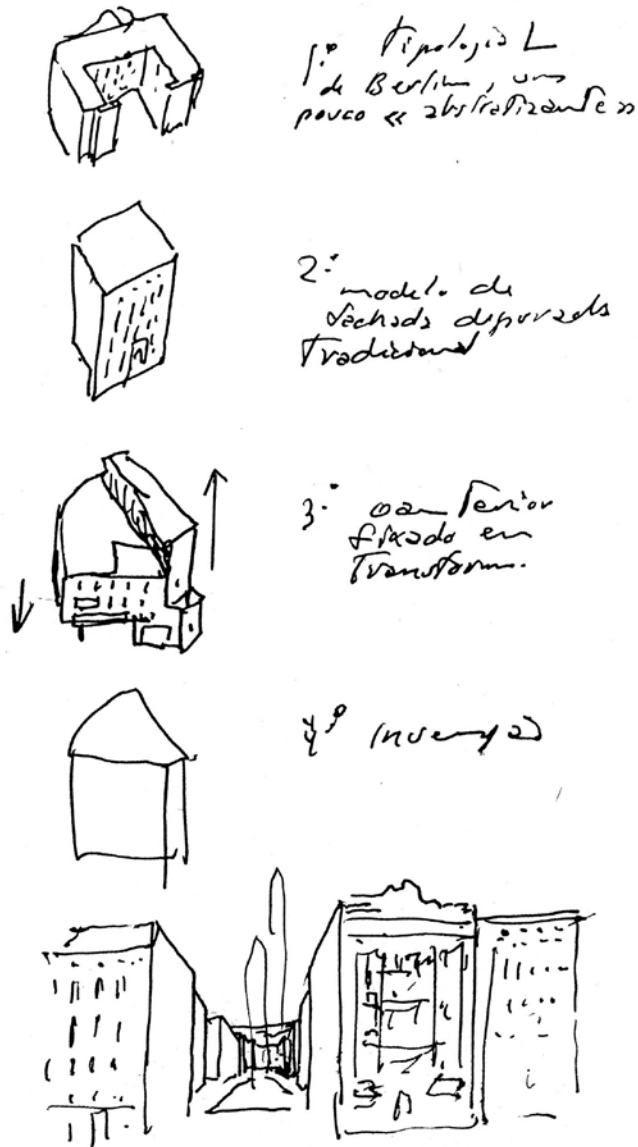 1.º Tipologia L
de Berlim, um
pouco « abstratizante »
2.º
modelo de
fachada depurada
tradicional
3.º anterior
fixado em
transform.
4º